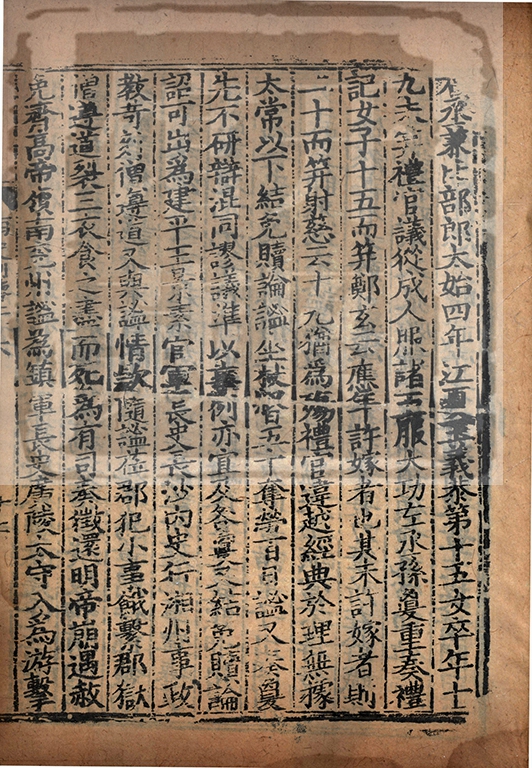 右丞兼比部郎太始四年江夏王義恭第十五女卒年十
九未笄禮官議從成人服諸王服大功左丞孫夐重奏禮
記女子十五而笄鄭玄云應年許嫁者也其未許嫁者則
二十而笄射慈云十九猶為殤禮官違越經典於理無據
太常以下結免贖論謐坐杖督五十奪勞百日謐又奏夐
先不研辯混同謬議准以事例亦宜及咎夐又結免贖論
詔可出為建平王景素官軍長史長沙內史行湘州事政
教苛刻僧尊道又與謐情款隨謐莅郡犯小事餓繫郡獄
僧尊道裂三衣食之盡而死為有司奏徵還明帝崩遇赦
免齊高帝領南兗州謐為鎮軍長史廣陵太守入為游擊